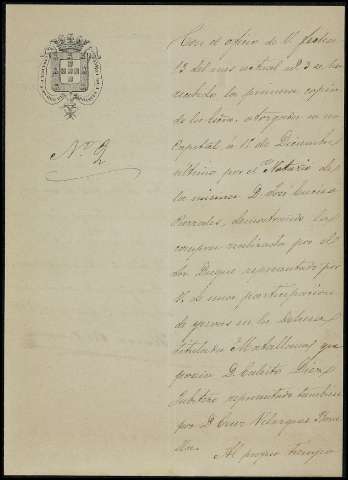 Con el oficio de V. fecha
13 del mes actual nº 3 se ha
recibido la primera copia
de la
capital a 1º de Diciembre
último por el Notario de
la misma D. José
demostrando la
compra realizada por el
Sor Duque representado por
V. de una participacion
de yervas en la dehesa
titulada Matallana que
poseia D. Calisto Diez
representado tambien
por D. Cruz Velazquez
Al propio tiempo
Nº 2